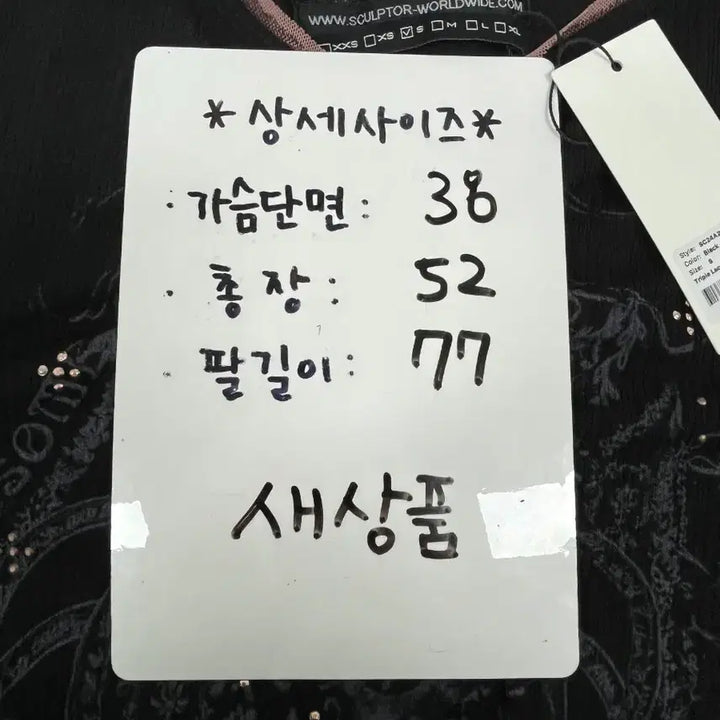 WWW.SCULPTOR-WORLDWIDE.COM
XXS XS S M L XL
*상세사이즈*
·가슴단면: 38
·총장: 52
·팔길이: 77
새상품
Style:
Color: Black
Size: S